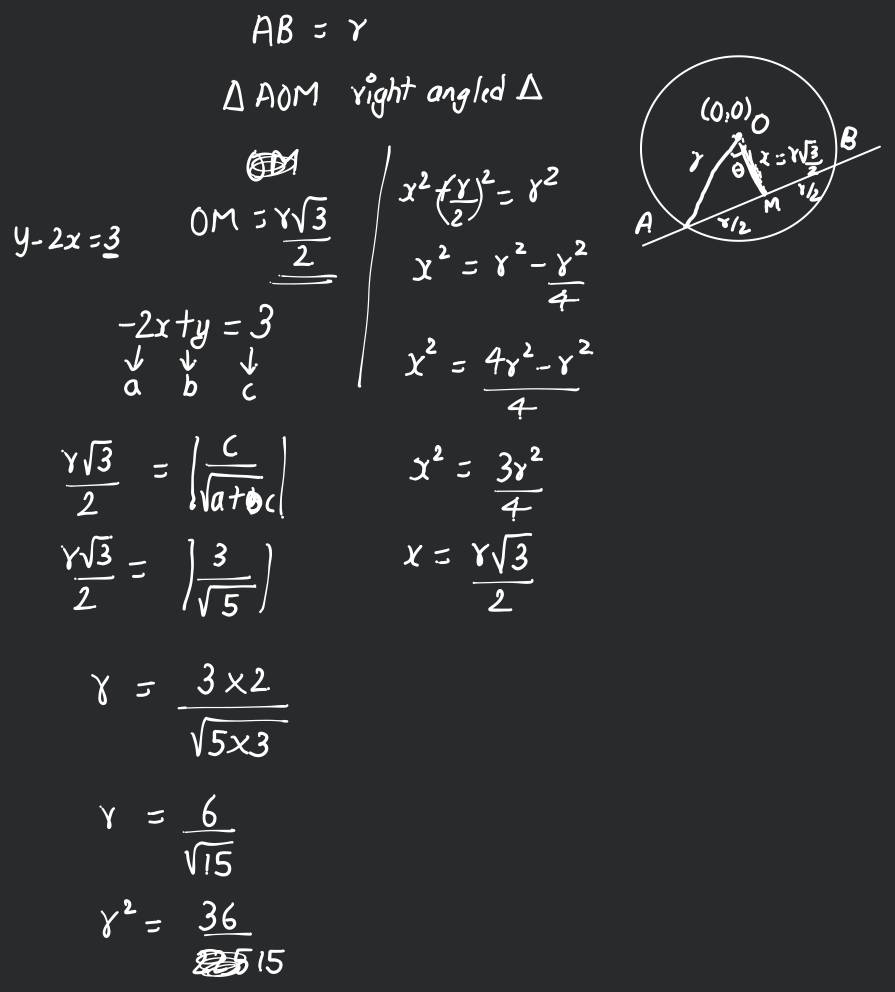 AB = r
Δ AOM right angled Δ
y - 2x = 3
OM = r√3/2
-2x + y = 3
↓ ↓ ↓
a b c
r√3/2 = |c/√a+bc|
r√3/2 = |3/√5|
r = 3×2/√5×3
r = 6/√15
r² = 36/15
x² + (r/2)² = r²
x² = r² - r²/4
x² = 4r² - r²/4
x² = 3r²/4
x = r√3/2
(0,0) O
B
r
θ
x = r√3/2
r/2
M
A
r/2